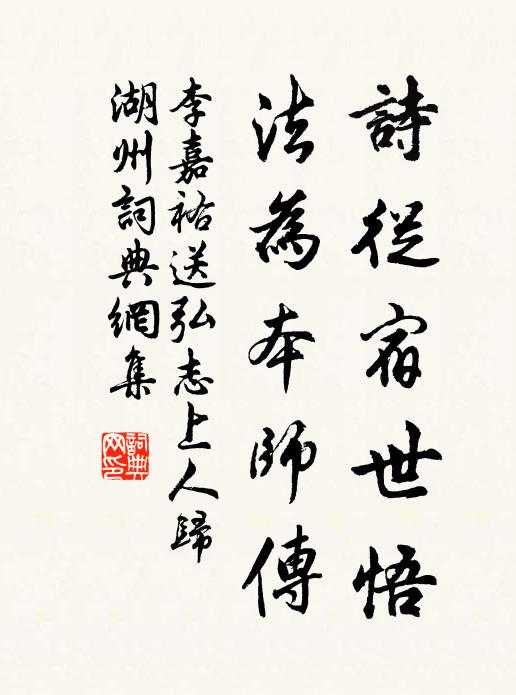 詩從宿世悟
法為本師傳
李嘉祐送弘志上人歸
湖州詞典網集
詞典
网印